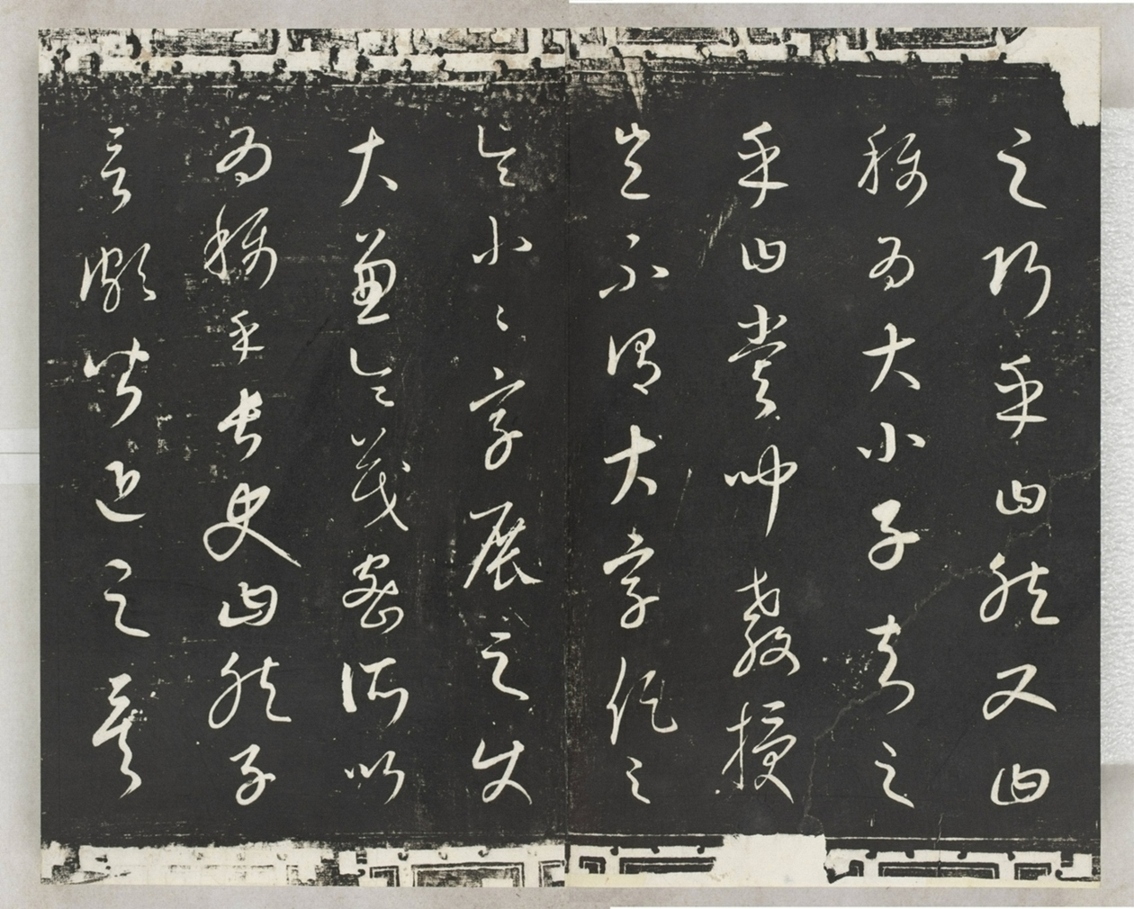 之巧乎曰然又曰
稱為大小子知之
乎曰嘗聞教授
豈不謂大字促之
令小〻字展之使
大兼令茂密所以
為稱乎長史曰然子
言頗皆近之矣